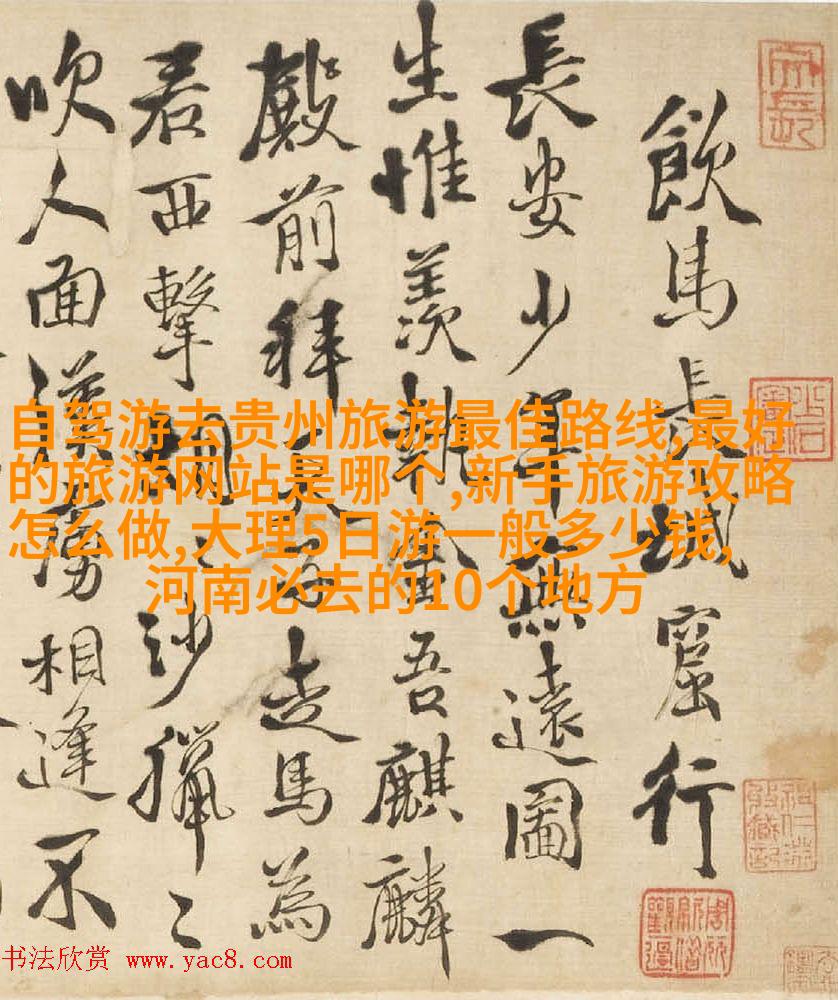 飲馬長城窟行
長安少年無遠圖一
生惟羨執金吾麒麟
殿前拜天子走馬為
君西擊胡〻沙獵〻
吹人面漢虜相逢不
自驾游去贵州旅游最佳路线,最好
的旅游网站是哪个,新手旅游攻略
怎么做,大理5日游一般多少钱,
河南必去的10个地方
书法欣赏 www.yac8.com